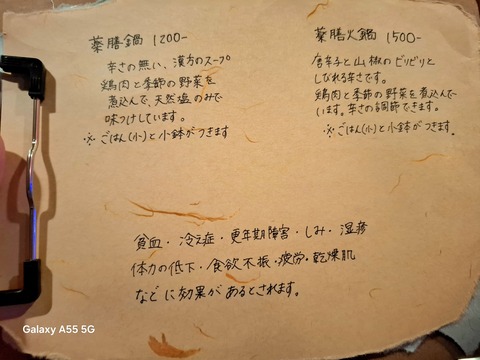 薬膳鍋 1200-
辛さの無い、漢方のスープ
鶏肉と季節の野菜を
煮込んで、天然塩のみで
味つけしています。
※ごはん(小)と小鉢がつきます
薬膳火鍋 1500-
唐辛子と山椒のピリピリと
しびれる辛さです。
鶏肉と季節の野菜を煮込んで
います。辛さの調節できます。
※ごはん(小)と小鉢がつきます。
貧血・冷え症・更年期障害・しみ・湿疹
体力の低下・食欲不振・疲労・乾燥肌
などに効果があるとされます。
Galaxy A55 5G